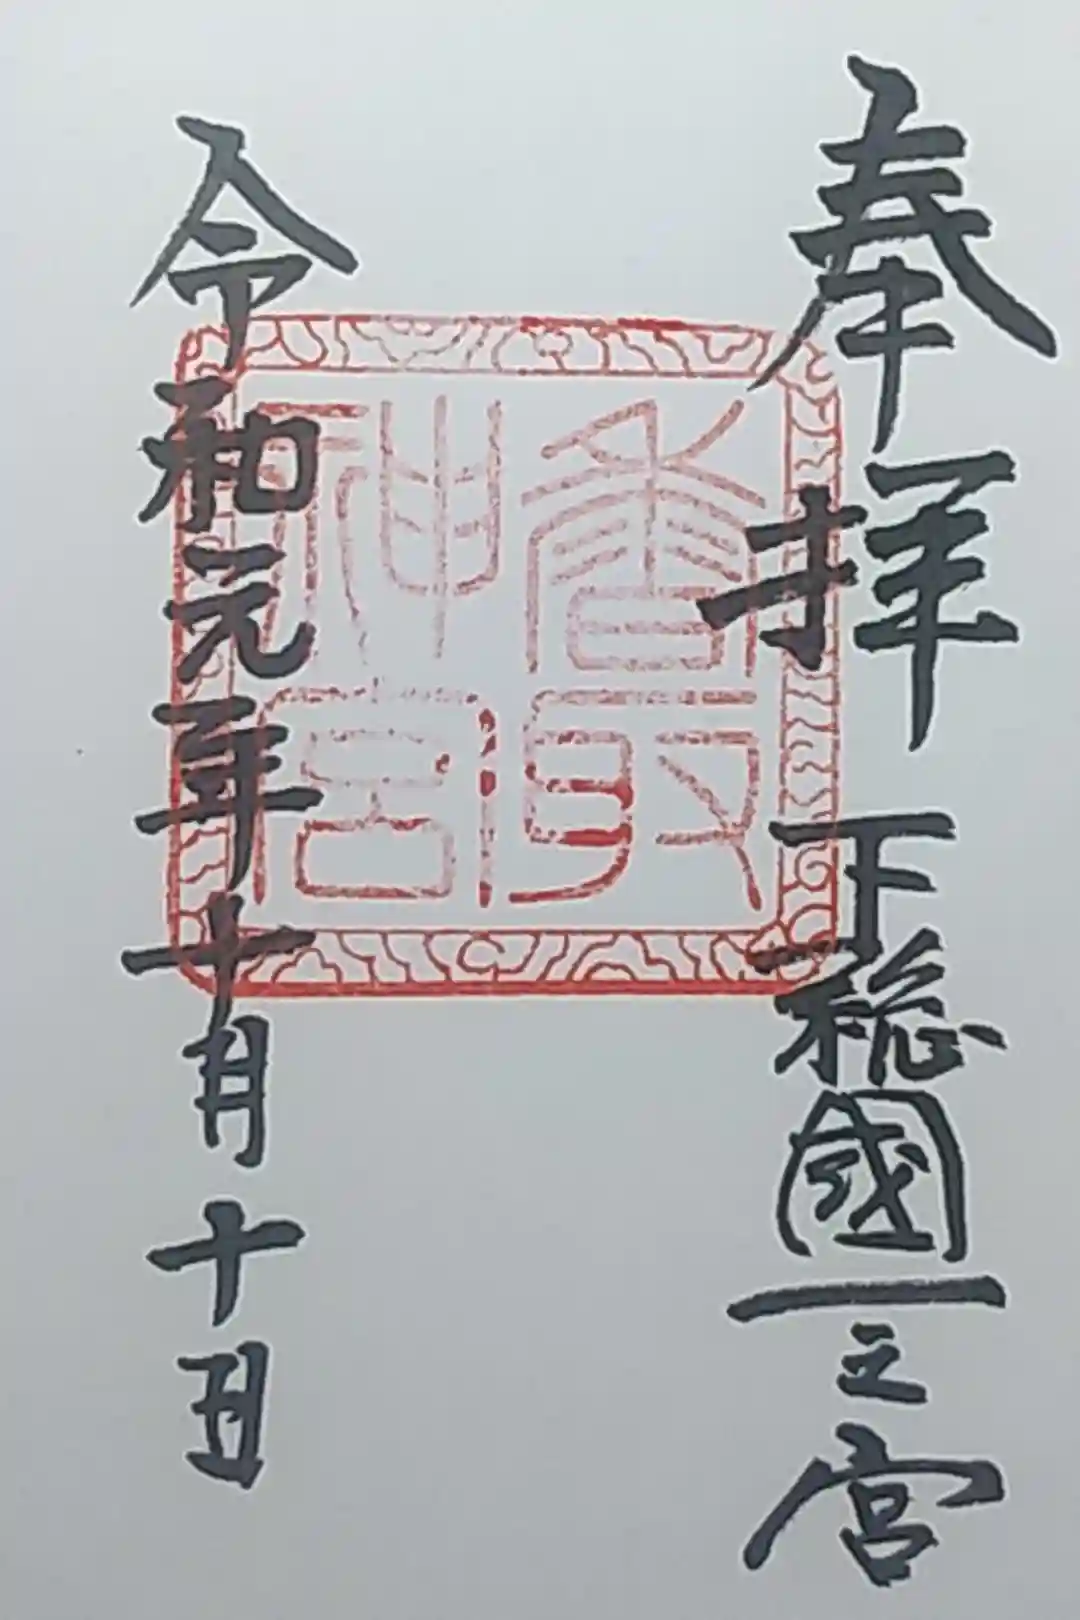 奉拝 下総國一之宮
香取
神宮
令和元年十月十日